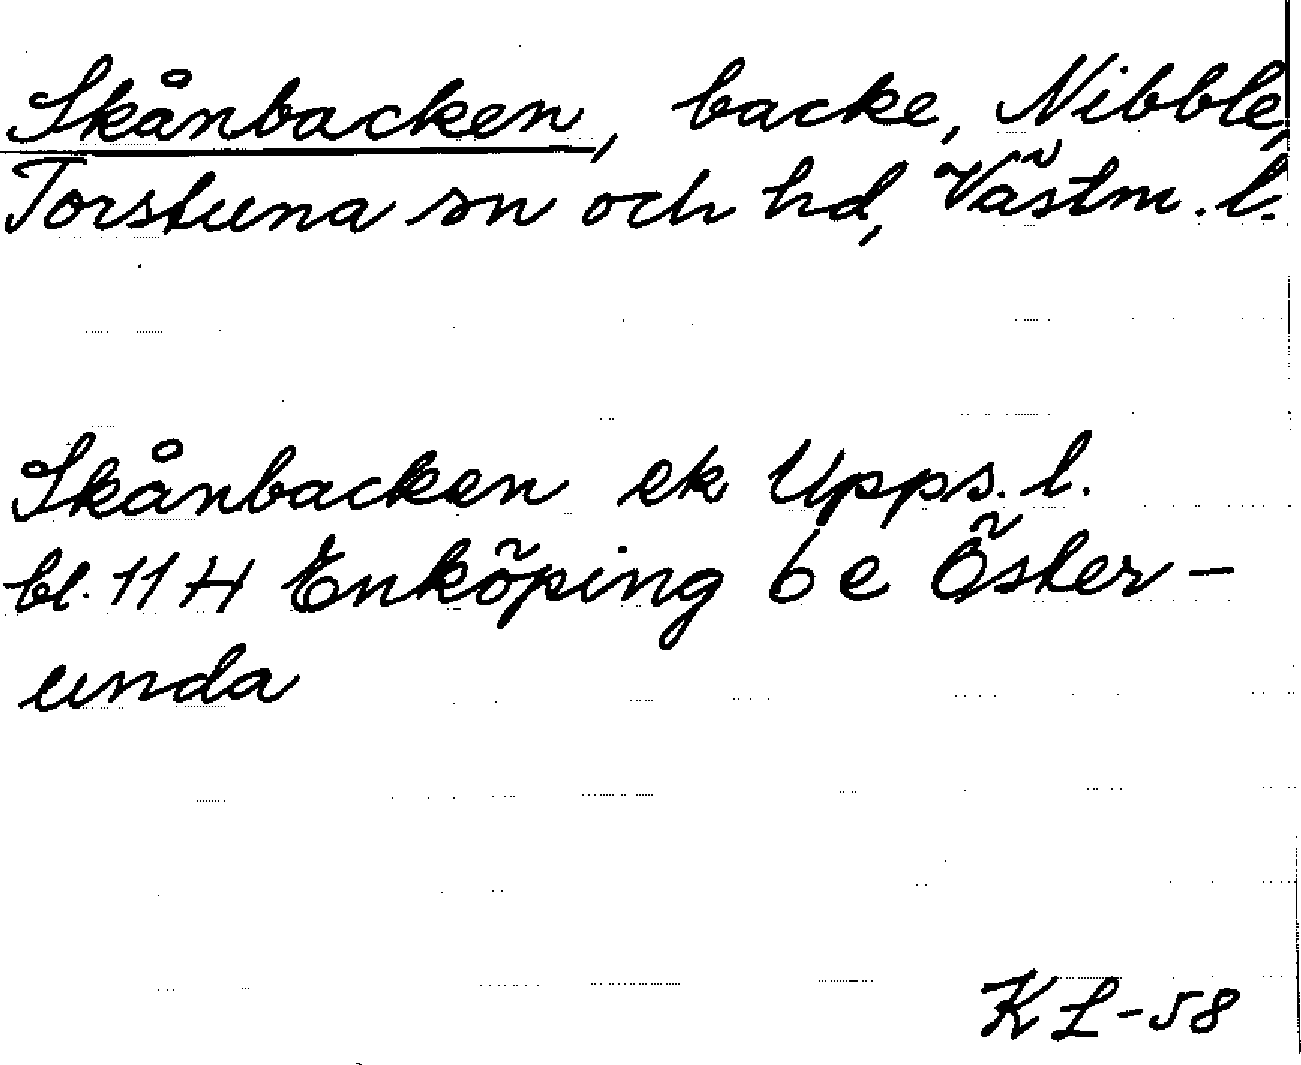 Skånbacken, backe, Nibble,
Torstuna sn och hd, Västm. l.
Skånbacken ek Upps. l.
bl. 11 H Enköping 6 e Öster-
unda
KL-58